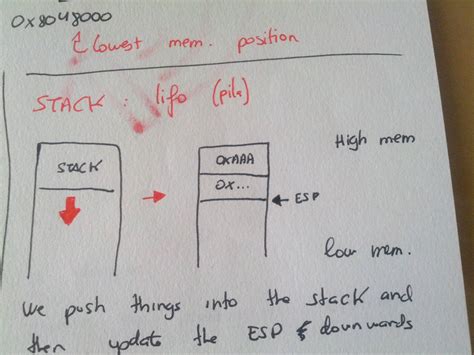 0x8048000
lowest mem. position
STACK: lifo (pila)
STACK
0XAAA
0X...
ESP
High mem
low mem.
We push things into the stack and
then update the ESP downwards